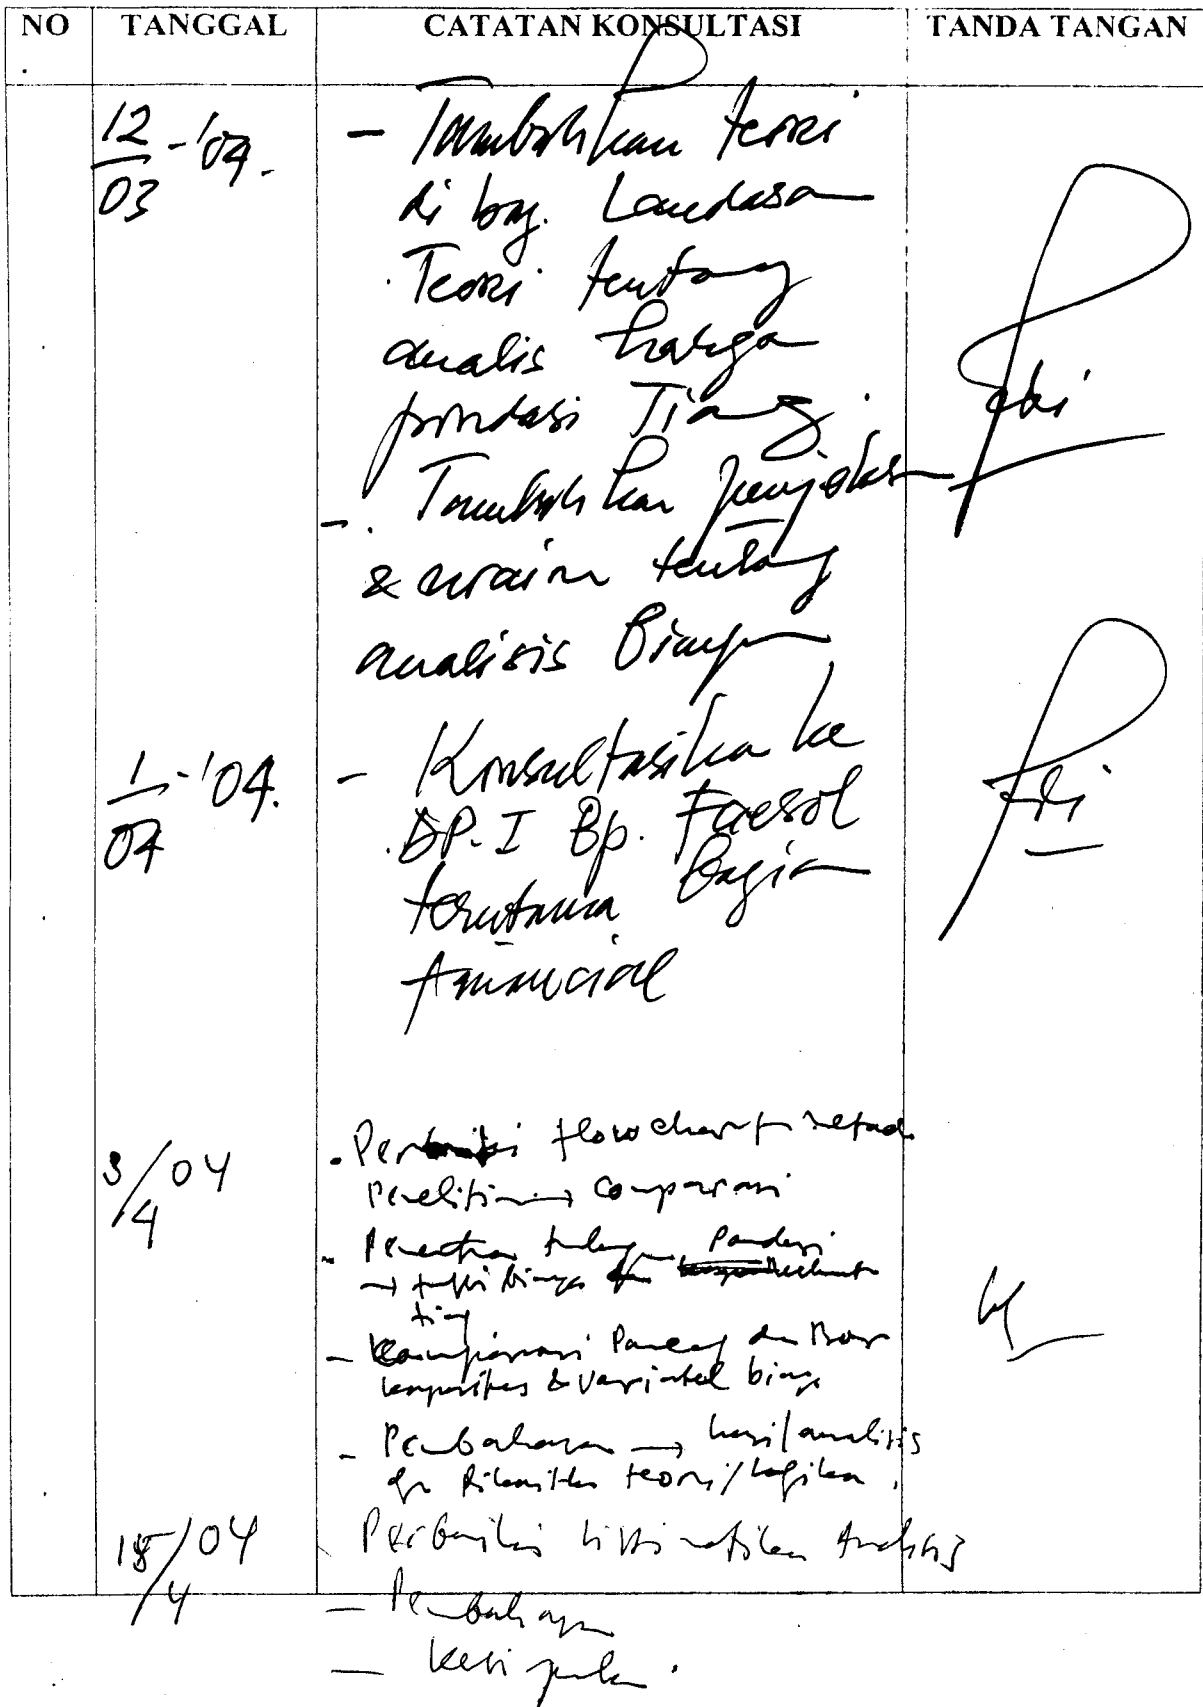 NO TANGGAL CATATAN KONSULTASI TANDA TANGAN
12/03 - '04. - Tambahkan teori
di bag. Landasan
Teori tentang
analis harga
pondasi Tiang.
- Tambahkan penjelasan
& uraian tentang
analisis Biaya
1/04 - '04. - Konsultasikan ke
DP. I Bp. Faesol
terutama bagian
finansial
3/4 04 - Perbaiki flowchart metode
Penelitian → Comparasi
- Pondasi
→ biaya
tiang
- Komparasi Pancang dan Bor
kapasitas & variabel biaya
- Pembahasan → hasil analisis
dg dikaitkan teori/logika.
15/4 04 Perbaiki sistimatika Analisis
- Pembahasan
- Kesimpulan.